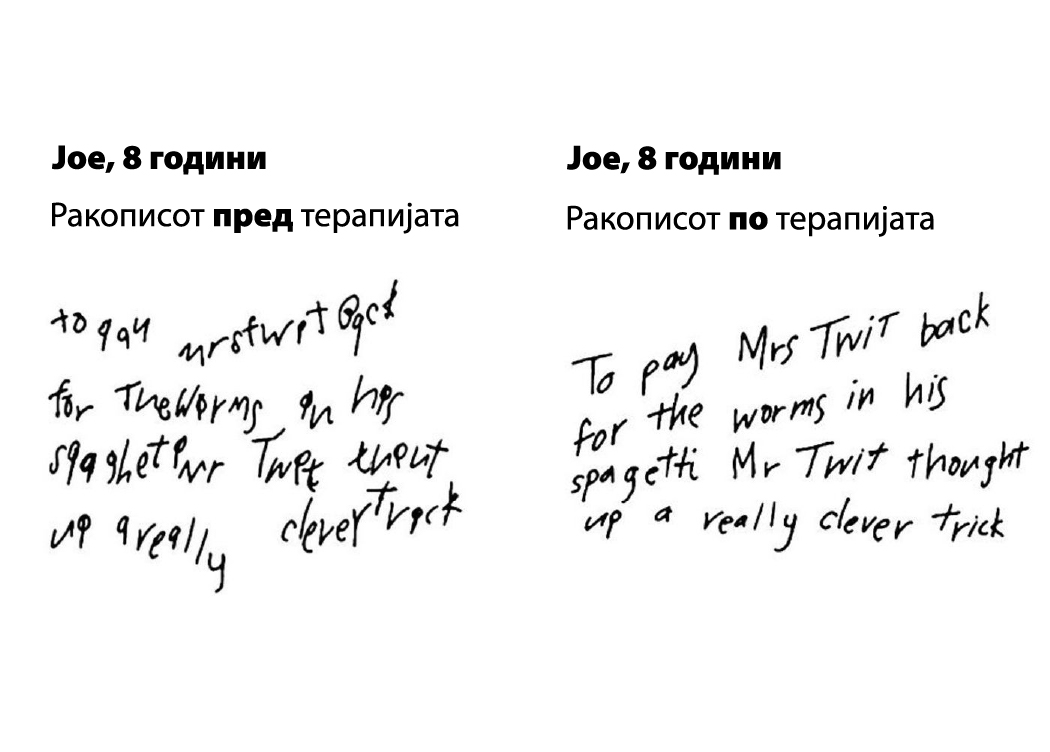 Joe, 8 години
Ракописот пред терапијата
to qay mrstwit Bqck
for TheWorms in his
sqaghetimr Twit theut
up a really clevertrick
Joe, 8 години
Ракописот по терапијата
To pay Mrs Twit back
for the worms in his
spagetti Mr Twit thought
up a really clever trick